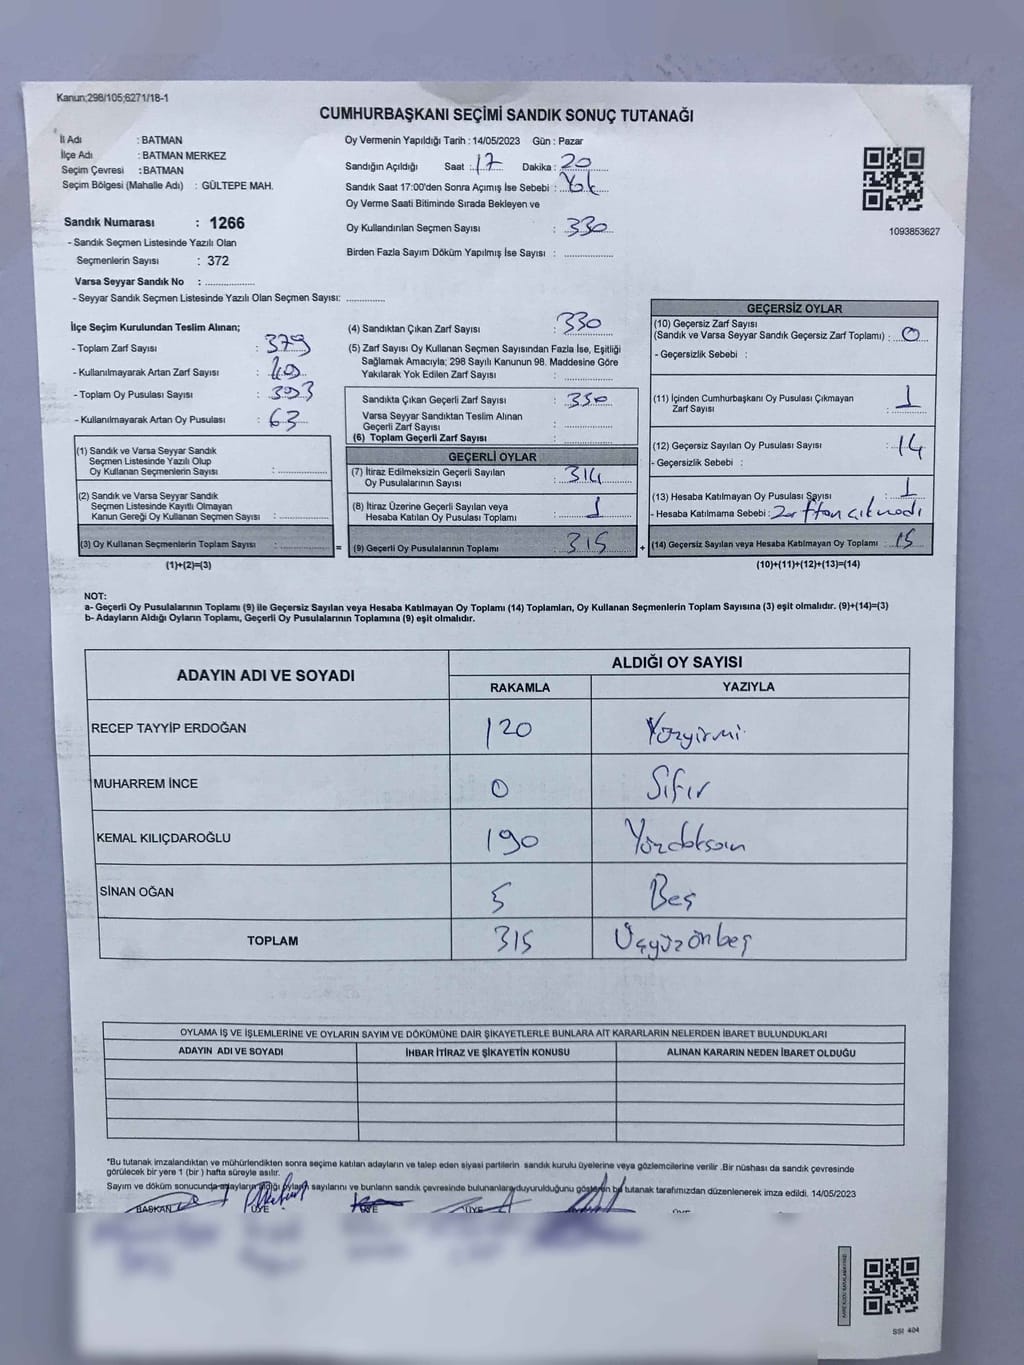 Kanun;298/105;6271/18-1
CUMHURBAŞKANI SEÇİMİ SANDIK SONUÇ TUTANAĞI
İl Adı : BATMAN
İlçe Adı : BATMAN MERKEZ
Seçim Çevresi : BATMAN
Seçim Bölgesi (Mahalle Adı) : GÜLTEPE MAH.
Sandık Numarası : 1266
- Sandık Seçmen Listesinde Yazılı Olan
Seçmenlerin Sayısı : 372
Varsa Seyyar Sandık No : ...............
- Seyyar Sandık Seçmen Listesinde Yazılı Olan Seçmen Sayısı: ............
Oy Vermenin Yapıldığı Tarih : 14/05/2023 Gün : Pazar
Sandığın Açıldığı Saat : 17 Dakika : 20
Sandık Saat 17:00'den Sonra Açımış İse Sebebi : Yok
Oy Verme Saati Bitiminde Sırada Bekleyen ve
Oy Kullandırılan Seçmen Sayısı : 330
Birden Fazla Sayım Döküm Yapılmış İse Sayısı : ...............
1093853627
İlçe Seçim Kurulundan Teslim Alınan;
- Toplam Zarf Sayısı : 379
- Kullanılmayarak Artan Zarf Sayısı : 49
- Toplam Oy Pusulası Sayısı : 393
- Kullanılmayarak Artan Oy Pusulası : 63
(1) Sandık ve Varsa Seyyar Sandık
Seçmen Listesinde Yazılı Olup
Oy Kullanan Seçmenlerin Sayısı : ...............
(2) Sandık ve Varsa Seyyar Sandık
Seçmen Listesinde Kayıtlı Olmayan
Kanun Gereği Oy Kullanan Seçmen Sayısı : ...............
(3) Oy Kullanan Seçmenlerin Toplam Sayısı : ............... =
(1)+(2)=(3)
(4) Sandıktan Çıkan Zarf Sayısı : 330
(5) Zarf Sayısı Oy Kullanan Seçmen Sayısından Fazla İse, Eşitliği
Sağlamak Amacıyla; 298 Sayılı Kanunun 98. Maddesine Göre
Yakılarak Yok Edilen Zarf Sayısı : ...............
Sandıkta Çıkan Geçerli Zarf Sayısı : 330
Varsa Seyyar Sandıktan Teslim Alınan
Geçerli Zarf Sayısı : ...............
(6) Toplam Geçerli Zarf Sayısı : ...............
GEÇERLİ OYLAR
(7) İtiraz Edilmeksizin Geçerli Sayılan
Oy Pusulalarının Sayısı : 314
(8) İtiraz Üzerine Geçerli Sayılan veya
Hesaba Katılan Oy Pusulası Toplamı : 1
(9) Geçerli Oy Pusulalarının Toplamı : 315 +
GEÇERSİZ OYLAR
(10) Geçersiz Zarf Sayısı
(Sandık ve Varsa Seyyar Sandık Geçersiz Zarf Toplamı) : 0
- Geçersizlik Sebebi :
(11) İçinden Cumhurbaşkanı Oy Pusulası Çıkmayan
Zarf Sayısı : 1
(12) Geçersiz Sayılan Oy Pusulası Sayısı : 14
- Geçersizlik Sebebi :
(13) Hesaba Katılmayan Oy Pusulası Sayısı : 1
- Hesaba Katılmama Sebebi : Zarftan çıkmadı
(14) Geçersiz Sayılan veya Hesaba Katılmayan Oy Toplamı : 15
(10)+(11)+(12)+(13)=(14)
NOT:
a- Geçerli Oy Pusulalarının Toplamı (9) ile Geçersiz Sayılan veya Hesaba Katılmayan Oy Toplamı (14) Toplamları, Oy Kullanan Seçmenlerin Toplam Sayısına (3) eşit olmalıdır. (9)+(14)=(3)
b- Adayların Aldığı Oyların Toplamı, Geçerli Oy Pusulalarının Toplamına (9) eşit olmalıdır.
ADAYIN ADI VE SOYADI ALDIĞI OY SAYISI
RAKAMLA YAZIYLA
RECEP TAYYİP ERDOĞAN 120 Yüzyirmi
MUHARREM İNCE 0 Sıfır
KEMAL KILIÇDAROĞLU 190 Yüzdoksan
SİNAN OĞAN 5 Beş
TOPLAM 315 Üçyüzonbeş
OYLAMA İŞ VE İŞLEMLERİNE VE OYLARIN SAYIM VE DÖKÜMÜNE DAİR ŞİKAYETLERLE BUNLARA AİT KARARLARIN NELERDEN İBARET BULUNDUKLARI
ADAYIN ADI VE SOYADI İHBAR İTİRAZ VE ŞİKAYETİN KONUSU ALINAN KARARIN NEDEN İBARET OLDUĞU
*Bu tutanak imzalandıktan ve mühürlendikten sonra seçime katılan adayların ve talep eden siyasi partilerin sandık kurulu üyelerine veya gözlemcilerine verilir .Bir nüshası da sandık çevresinde
görülecek bir yere 1 (bir ) hafta süreyle asılır.
Sayım ve döküm sonucunda adayların aldığı oyların sayılarını ve bunların sandık çevresinde bulunanlara duyurulduğunu gösteren bu tutanak tarafımızdan düzenlenerek imza edildi. 14/05/2023
BAŞKAN ÜYE ÜYE ÜYE
SSI 404